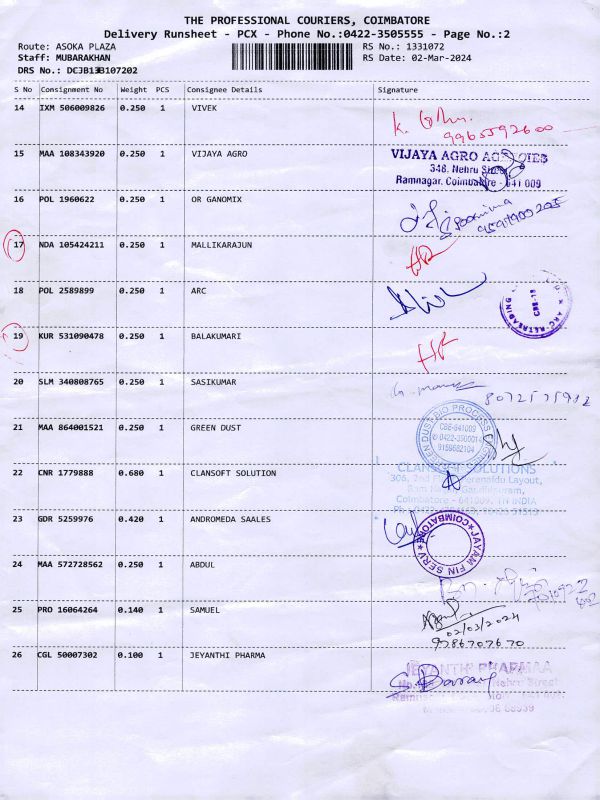 THE PROFESSIONAL COURIERS, COIMBATORE
Delivery Runsheet - PCX - Phone No.:0422-3505555 - Page No.:2
Route: ASOKA PLAZA RS No.: 1331072
Staff: MUBARAKHAN RS Date: 02-Mar-2024
DRS No.:
S No Consignment No Weight PCS Consignee Details Signature
14 IXM 506009826 0.250 1 VIVEK
9965592600
15 MAA 108343920 0.250 1 VIJAYA AGRO
VIJAYA AGRO AGENCIES
348, Nehru Street
Ramnagar, Coimbatore - 641 009
16 POL 1960622 0.250 1 OR GANOMIX
Poornima
17 NDA 105424211 0.250 1 MALLIKARJUN
18 POL 2589899 0.250 1 ARC
ARC RETREADING
CBE-18
19 KUR 531090478 0.250 1 BALAKUMARI
20 SLM 340808765 0.250 1 SASIKUMAR
21 MAA 864001521 0.250 1 GREEN DUST
GREEN DUST BIO PROCESS
CBE-641009
0422-3500014
9159682104
22 CNR 1779888 0.680 1 CLANSOFT SOLUTION
CLANSOFT SOLUTIONS
306, 2nd Layout,
Ram Nagar, Gandhipuram,
Coimbatore - 641009, TN INDIA
23 GDR 5259976 0.420 1 ANDROMEDA SAALES
JAYAM FIN SERV
COIMBATORE
24 MAA 572728562 0.250 1 ABDUL
25 PRO 16064264 0.140 1 SAMUEL
02/03/2024
9786707670
26 CGL 50007302 0.100 1 JEYANTHI PHARMA
JEYANTHI PHARMAA
Nehru Street